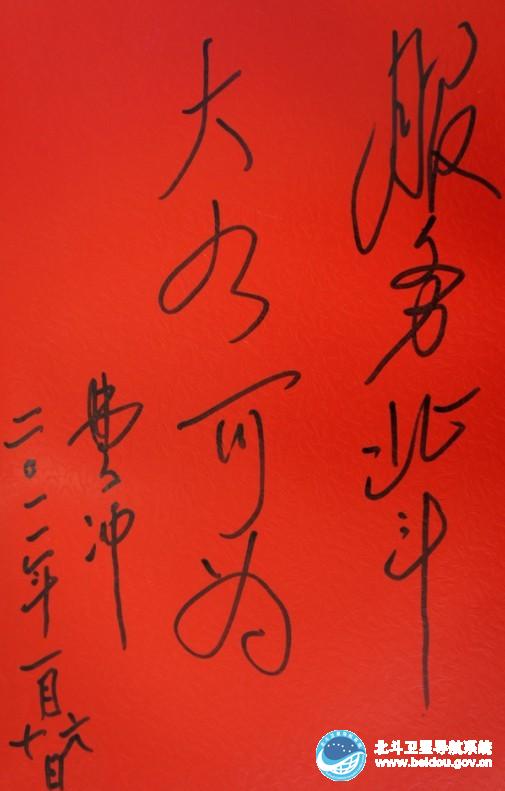 服务北斗
大有可为
费冲
二〇一一年一月十六日
北斗卫星导航系统
www.beidou.gov.cn